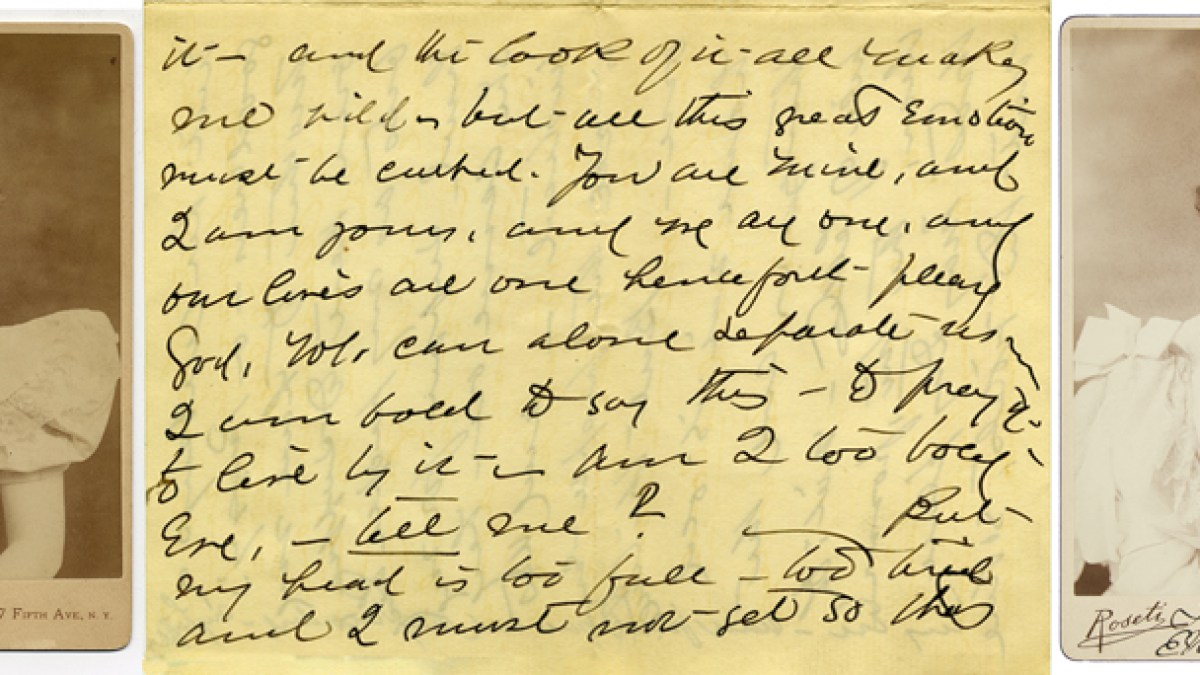 it – and the look of it – all makes
me wild – but – all this great Emotion
must be curbed. You are mine, and
I am yours, and we are one, and
our lives are one henceforth – please
God, who can alone separate us –
I am bold to say this – to pray &
to live by it – Am I too bold
Eve, – tell me? But –
my head is too full – too tired
and I must not get so
FIFTH AVE, N.Y.
Roseti